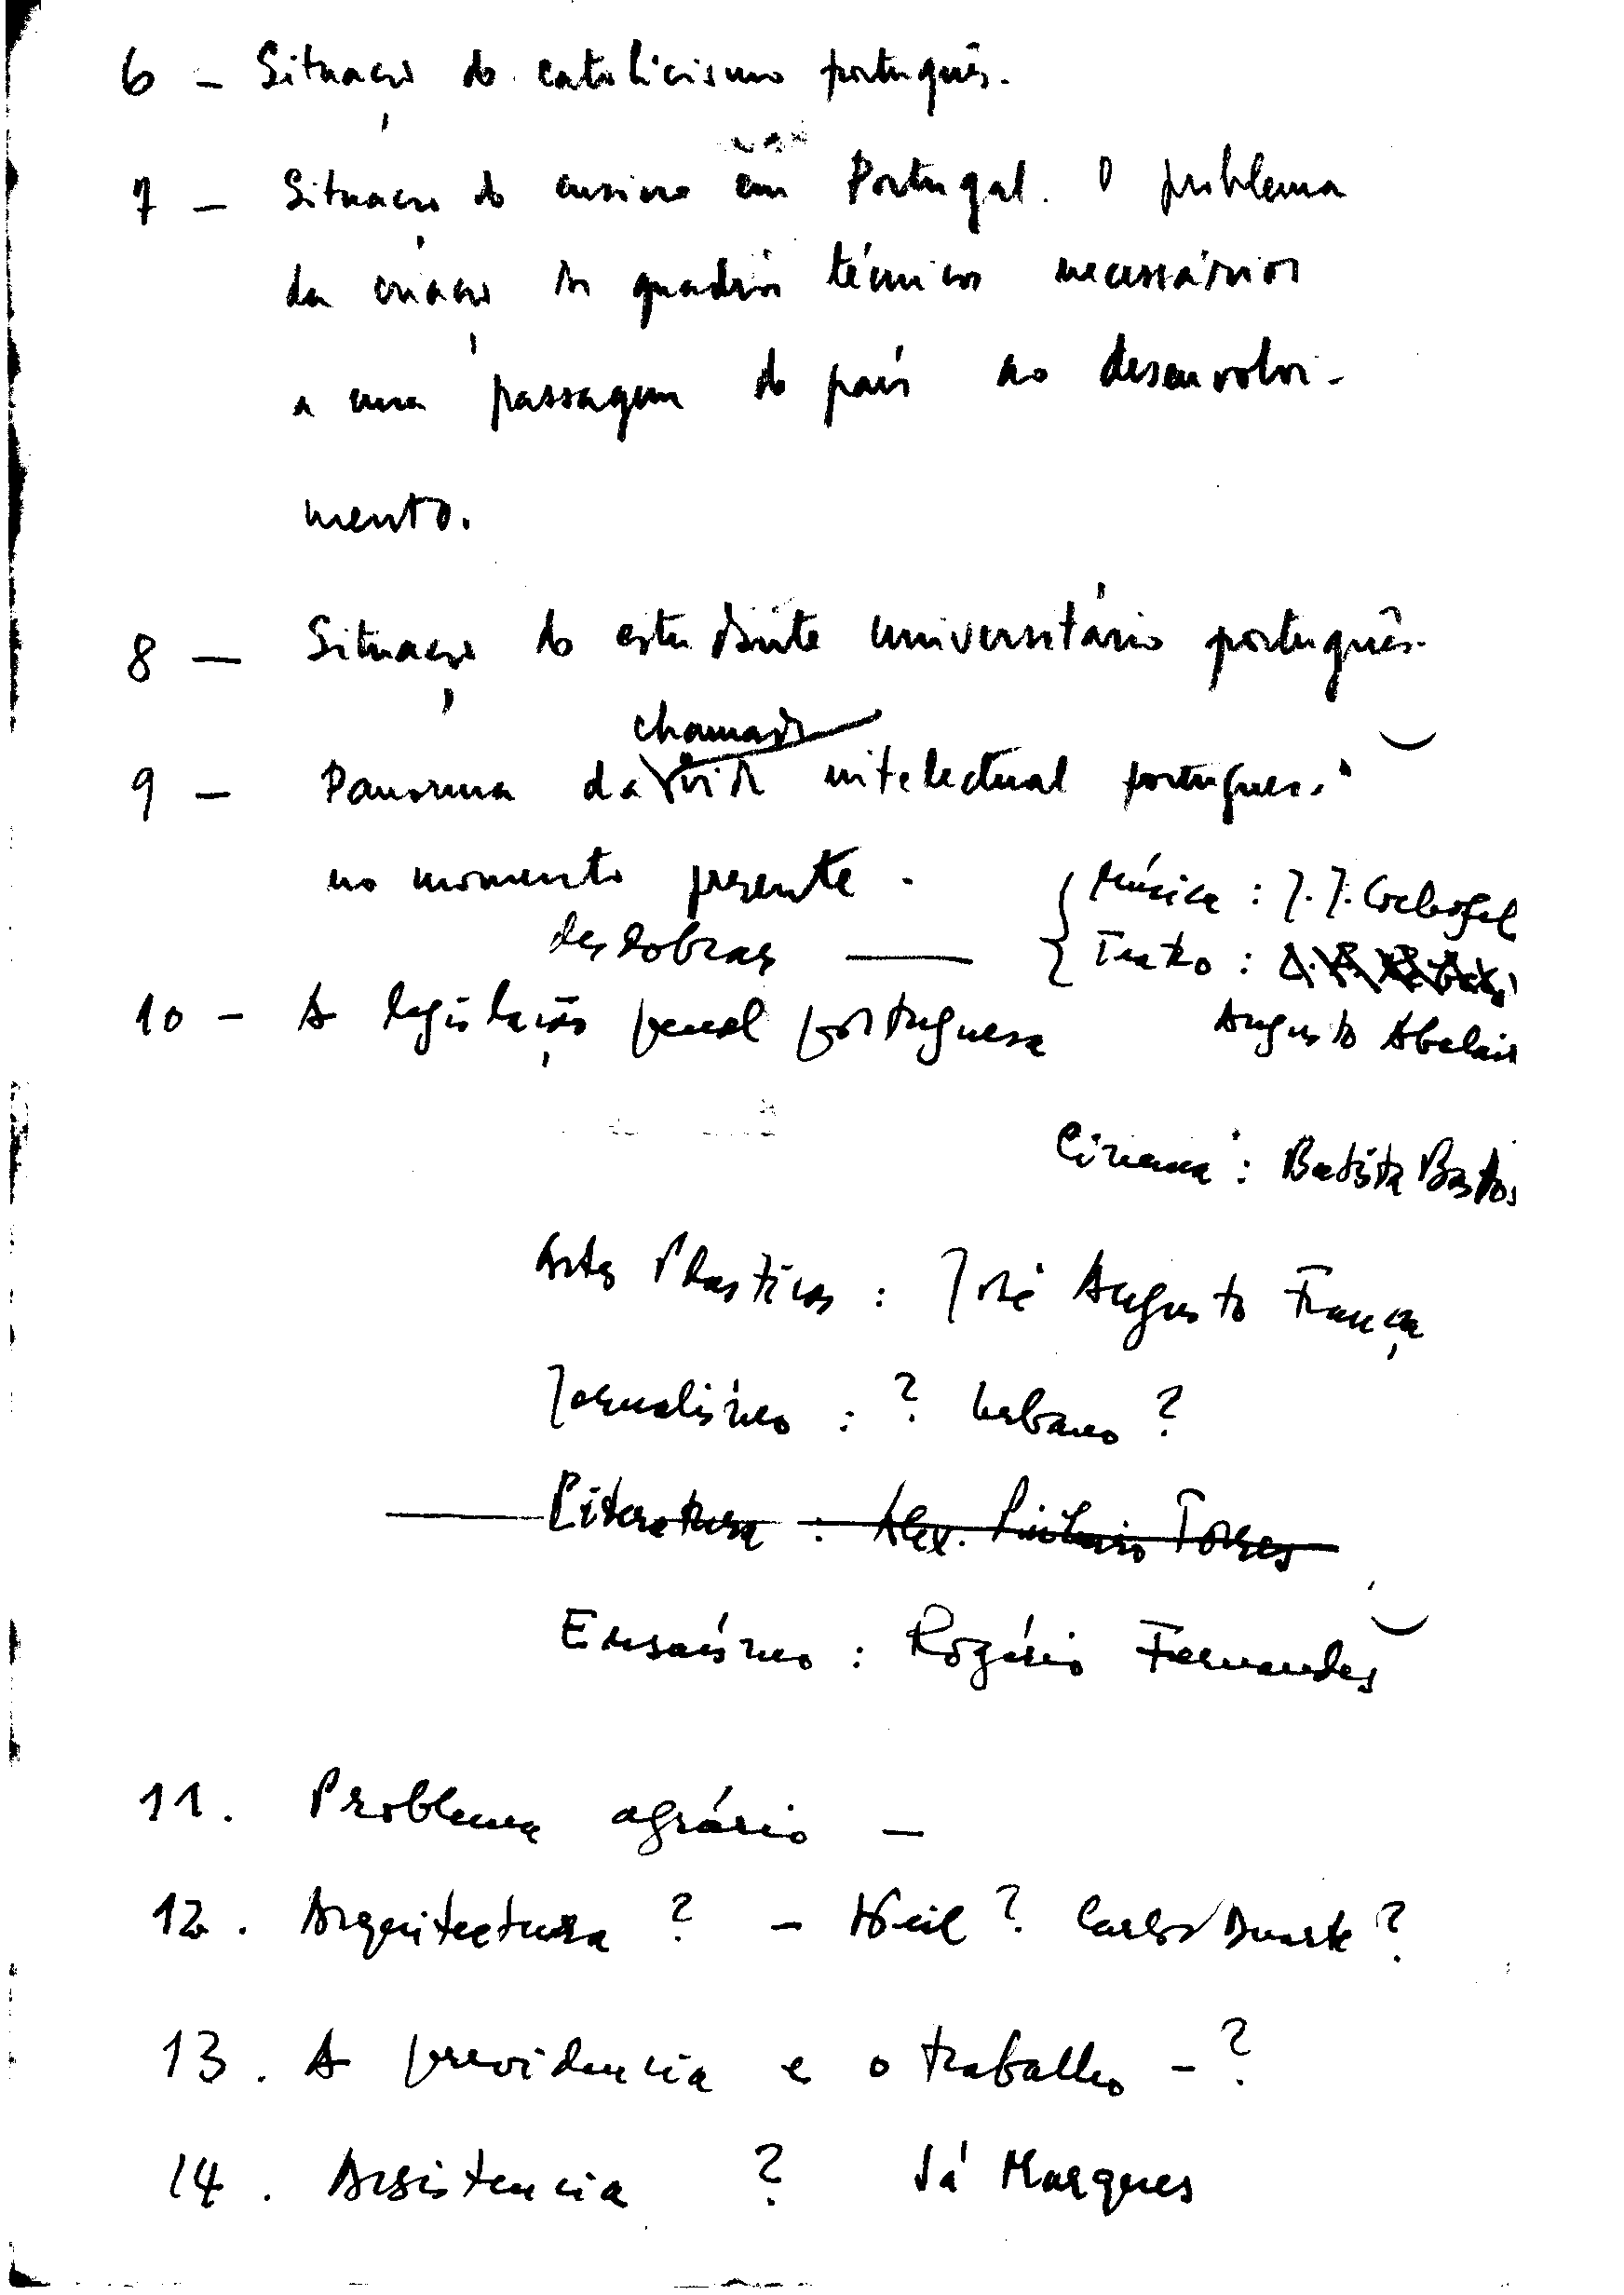 6 – Situação do catolicismo português.
7 – Situação do ensino em Portugal. O problema
da criação de quadros técnicos necessários
a uma passagem do país ao desenvolvi-
mento.
8 – Situação do estudante universitário português.
chamada
9 – Panorama da vida intelectual portuguesa
no momento presente.
desdobrar — { Música : J. J. Cochofel
Teatro :
Augusto Abelaira
10 – A legislação penal portuguesa
Cinema : Batista Bastos
Artes Plasticas : José Augusto França
Jornalismo : ? Urbano ?
Literatura : Alex. Pinheiro Torres
Ensaísmo : Rogério Fernandes
11. Problema agrário –
12. Arquitectura ? – Keil ? Carlos Duarte ?
13. A previdencia e o trabalho – ?
14. Assistencia ? Sá Marques